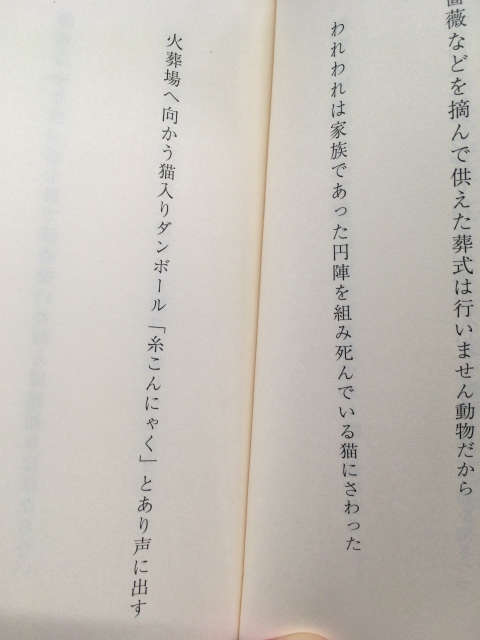 薔薇などを摘んで供えた葬式は行いません動物だから
われわれは家族であった円陣を組み死んでいる猫にさわった
火葬場へ向かう猫入りダンボール「糸こんにゃく」とあり声に出す